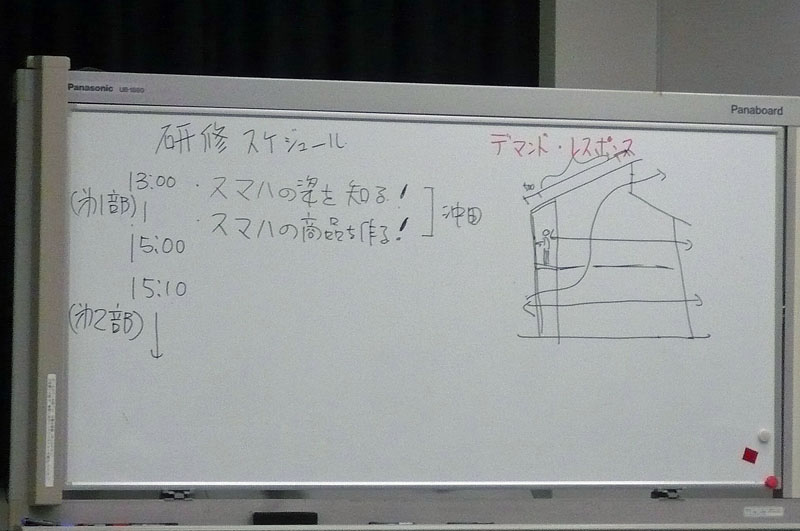 Panasonic UB-1880
Panaboard
研修 スケジュール
13:00 ・スマハの姿を知る！
(第1部)
・スマハの商品を作る！
沖田
15:00
15:10
(第2部)
デマンド・レスポンス